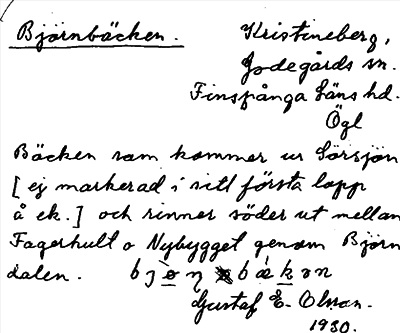 Björnbäcken.
Kristineberg,
Godegårds sn.
Finspånga Läns hd.
Ögl
Bäcken som kommer ur Sörsjön
[ej markerad i sitt första lopp
å ek.] och rinner söder ut mellan
Fagerhult o Nybygget genom Björn
dalen.
Gustaf E. Olson.
1930.